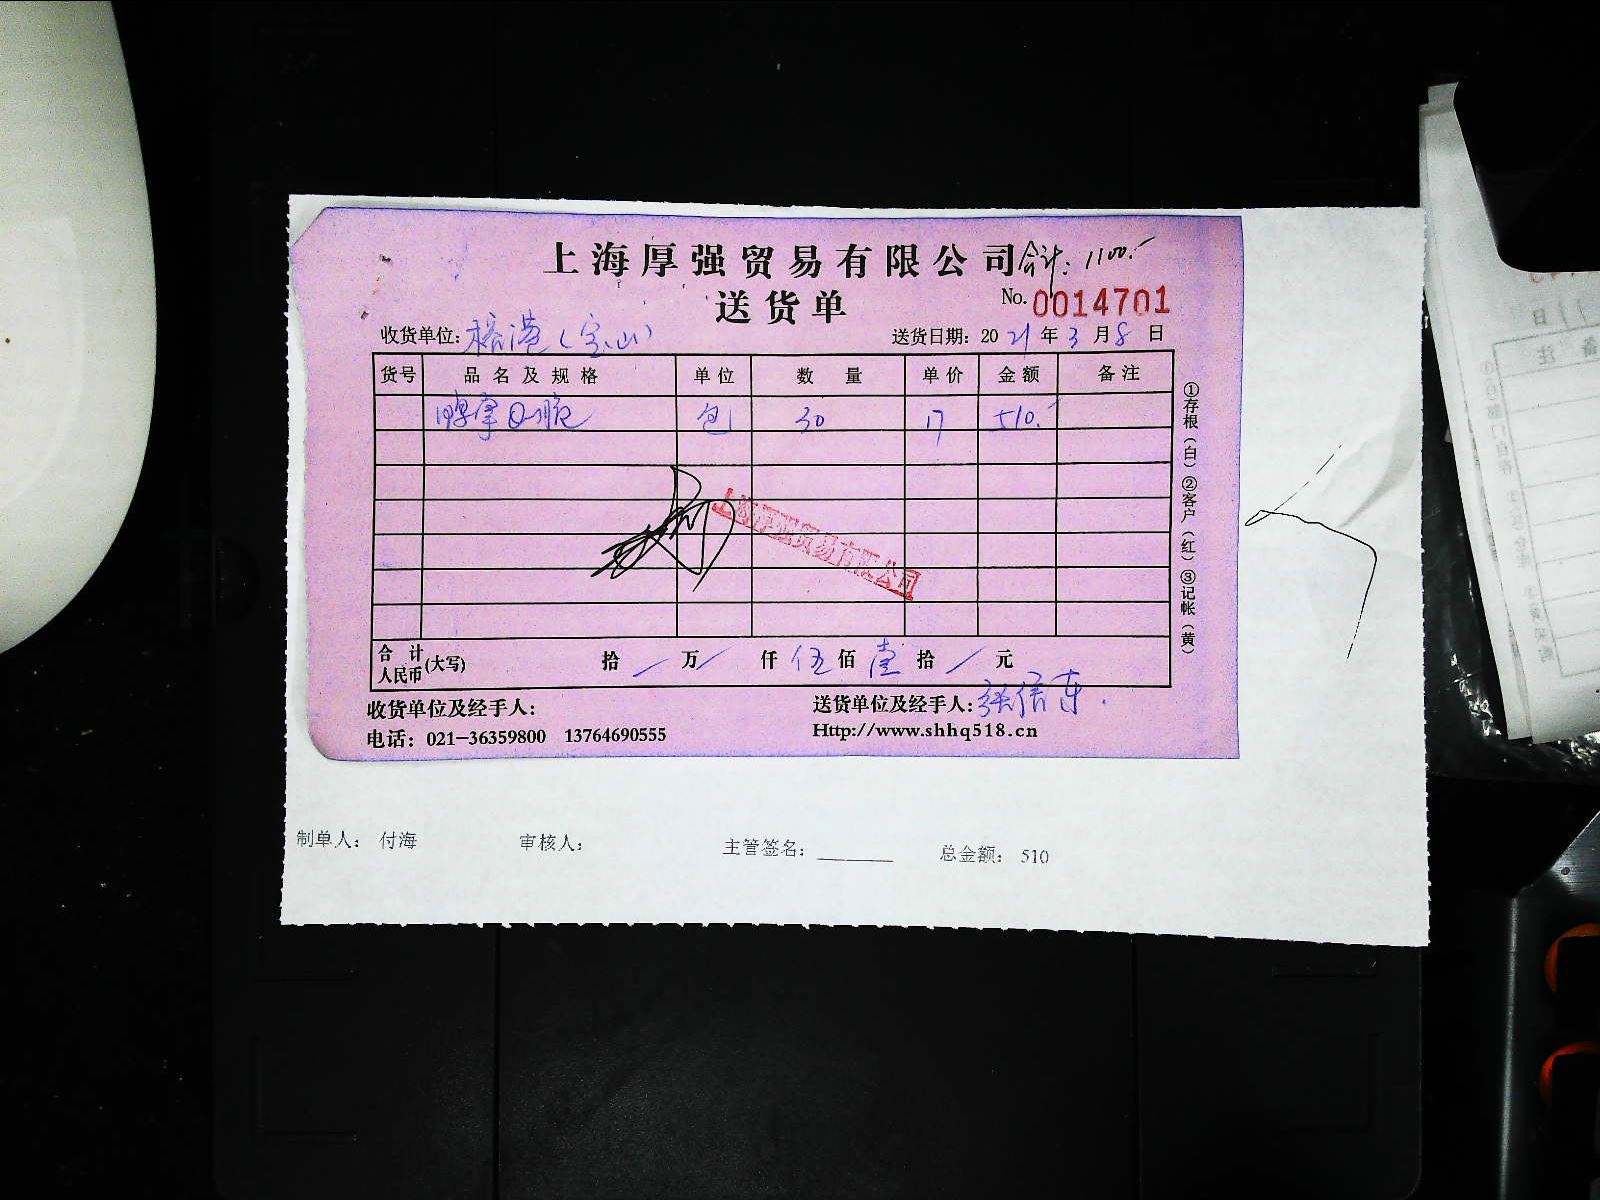 上海厚强贸易有限公司 合计：1100.-
送货单 No. 0014701
收货单位：榕港（宝山） 送货日期：2021年3月8日
货号 品名及规格 单位 数量 单价 金额 备注
鸭掌Q脆 包 30 17 510.-
上海厚强贸易有限公司
合计人民币(大写) 拾 / 万 / 仟 伍 佰 壹 拾 / 元
收货单位及经手人： 送货单位及经手人：张信东.
电话：021-36359800 13764690555 Http://www.shhq518.cn
①存根（白）②客户（红）③记帐（黄）
制单人： 付海 审核人： 主管签名：________ 总金额： 510